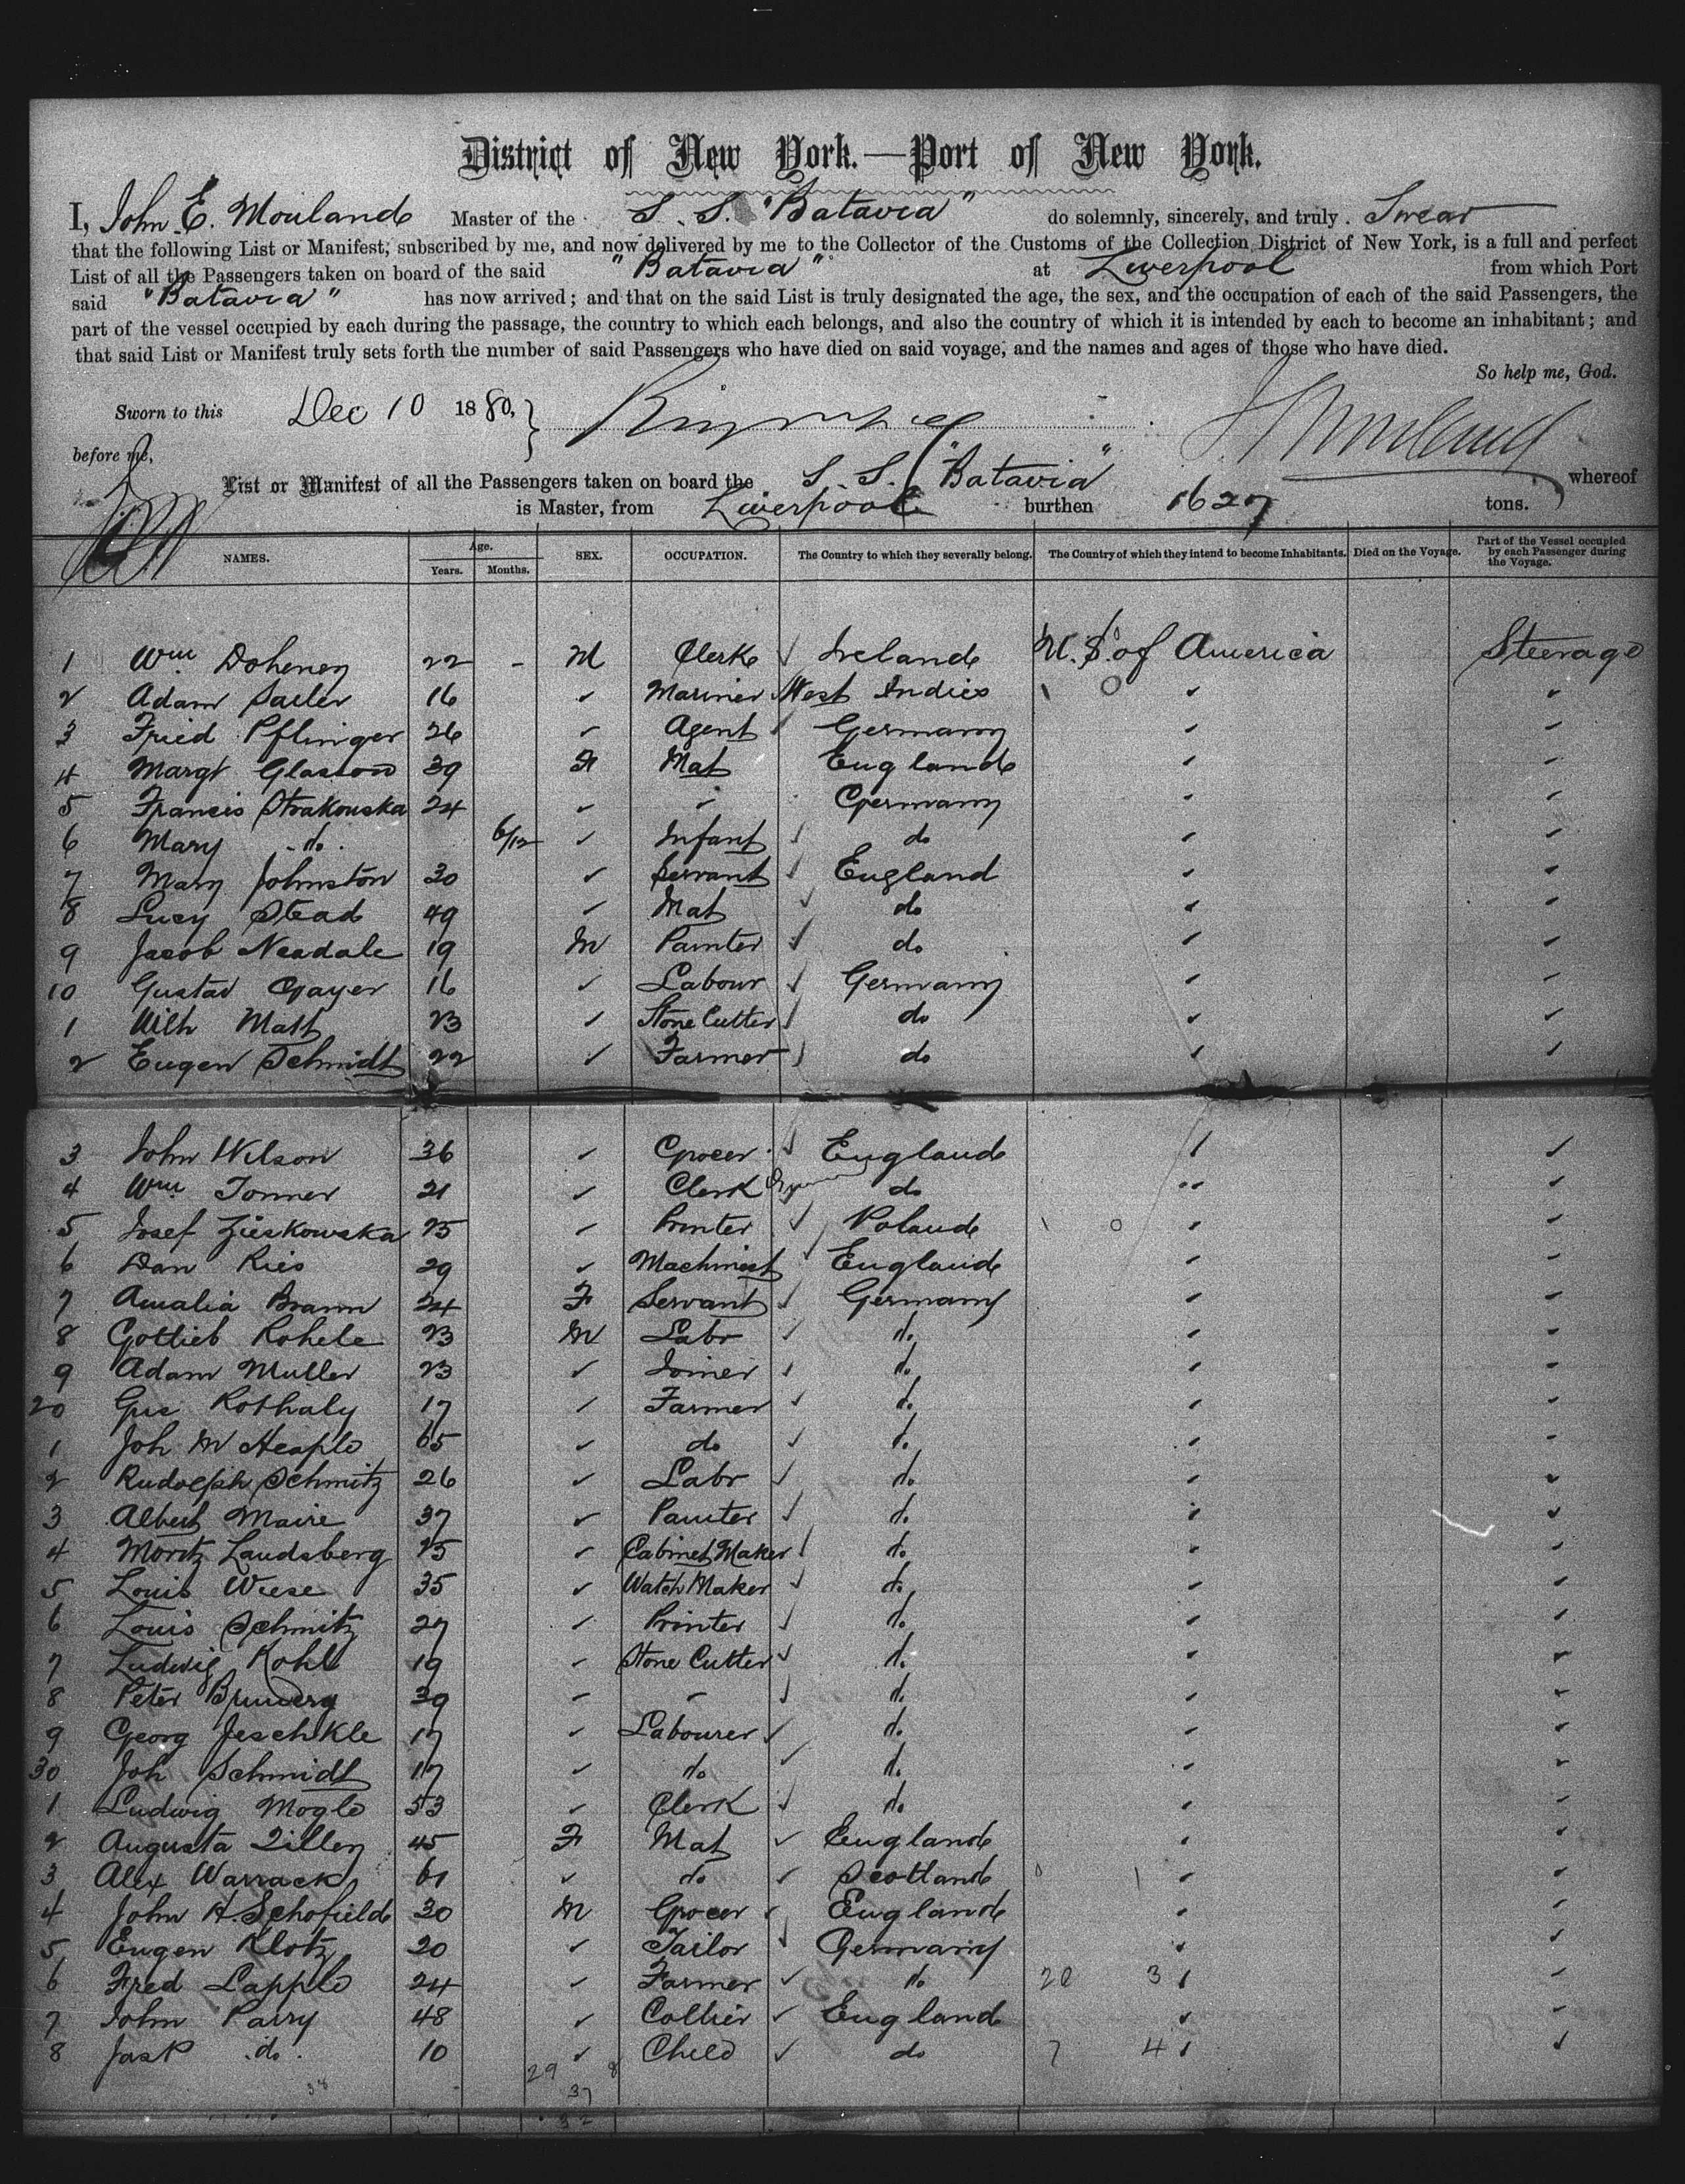 District of New York.—Port of New York.
I, John E. Mouland Master of the S. S. "Batavia" do solemnly, sincerely, and truly Swear
that the following List or Manifest, subscribed by me, and now delivered by me to the Collector of the Customs of the Collection District of New York, is a full and perfect
List of all the Passengers taken on board of the said "Batavia" at Liverpool from which Port
said "Batavia" has now arrived; and that on the said List is truly designated the age, the sex, and the occupation of each of the said Passengers, the
part of the vessel occupied by each during the passage, the country to which each belongs, and also the country of which it is intended by each to become an inhabitant; and
that said List or Manifest truly sets forth the number of said Passengers who have died on said voyage, and the names and ages of those who have died.
So help me, God.
Sworn to this Dec 10 1880,
before me,
List or Manifest of all the Passengers taken on board the S. S. "Batavia" whereof
is Master, from Liverpool burthen 1627 tons.
NAMES. Age. Years. Months. SEX. OCCUPATION. The Country to which they severally belong. The Country of which they intend to become Inhabitants. Died on the Voyage. Part of the Vessel occupied by each Passenger during the Voyage.
1 Wm Doheney 22 - M Clerk Ireland U. S. of America Steerage
2 Adam Sailer 16 Mariner West Indies
3 Fried Pflinger 26 Agent Germany
4 Margt Glasson 39 F Mat England
5 Francis Strakouska 24 Germany
6 Mary do. 6/12 Infant do
7 Mary Johnston 30 Servant England
8 Lucy Stead 49 Mat do
9 Jacob Neadale 19 M Painter do
10 Gustav Gayer 16 Labour Germany
1 Wilh Matt 23 Stone Cutter do
2 Eugen Schmidt 22 Farmer do
3 John Wilson 36 Grocer England
4 Wm Tonner 21 Clerk do
5 Josef Zieskowska 25 Printer Poland
6 Dan Ries 29 Machinist England
7 Amalia Brann 24 F Servant Germany
8 Gottlieb Rohele 23 M Labr do
9 Adam Muller 23 Joiner do
20 Gus Rothaly 17 Farmer do
1 Joh M Heaple 65 do do
2 Rudolph Schmitz 26 Labr do
3 Albert Maire 37 Painter do
4 Moritz Landsberg 25 Cabinet Maker do
5 Louis Wiese 35 Watch Maker do
6 Louis Schmitz 27 Printer do
7 Ludwig Kohl 19 Stone Cutter do
8 Peter 39 do
9 Georg Jeschkle 17 Labourer do
30 Joh Schmidt 17 do do
1 Ludwig Mogle 53 Clerk do
2 Augusta Tilley 45 F Mat England
3 Alex Warrack 61 do Scotland
4 John H. Schofield 30 M Grocer England
5 Eugen Klotz 20 Tailor Germany
6 Fred Lapple 24 Farmer do 20 3
7 John Parry 48 Collier England
8 Jas P do. 10 Child do 7 4
29 8
38 37